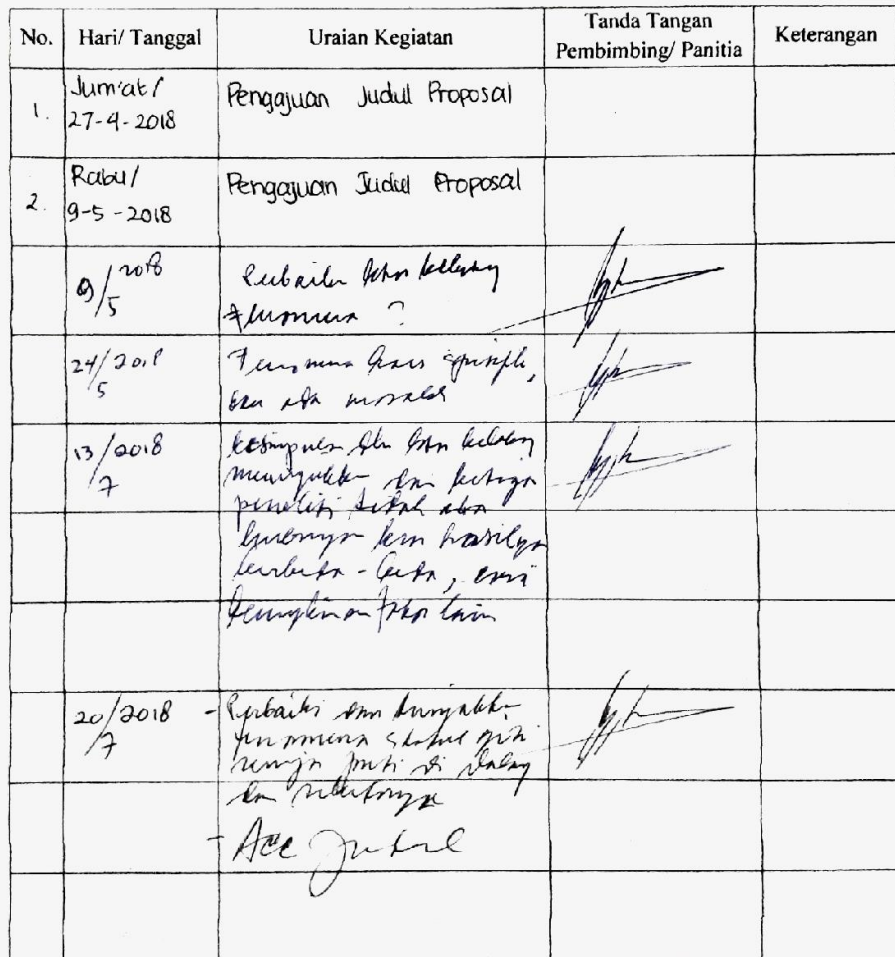 No. Hari/ Tanggal Uraian Kegiatan Tanda Tangan Pembimbing/ Panitia Keterangan
1. Jum'at / Pengajuan Judul Proposal
27-4-2018
2. Rabu / Pengajuan Judul Proposal
9-5-2018
9/5 2018 Perbaiki latar belakang
Fenomena ?
24/5 2018 Fenomena harus spesifik,
dan ada masalah
13/7 2018 kesimpulan dlm latar belakang
menunjukkan dari ketiga
peneliti tidak ada
hasilnya
berbeda-beda, cari
kemungkinan faktor lain
20/7 2018 - Perbaiki dan tunjukkan
fenomena status gizi
remaja putri di
dan sekitarnya
- Acc Judul